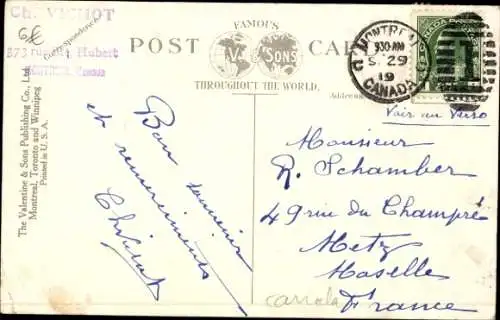 Ch. VICHOT
873 rue St Hubert
MONTREAL Canada
6€
Correspondence
FAMOUS
POST CARD
VALENTINE & SONS
THROUGHOUT THE WORLD.
MONTREAL
930 AM
S. 29
19
CANADA
Voir au Verso
The Valentine & Sons Publishing Co., Ltd.
Montreal, Toronto and Winnipeg
Printed in U. S. A.
Bon souvenir
et remerciments
ChVichot
Monsieur
R. Schamber
49 rue du Champé
Metz
Moselle
France
canada